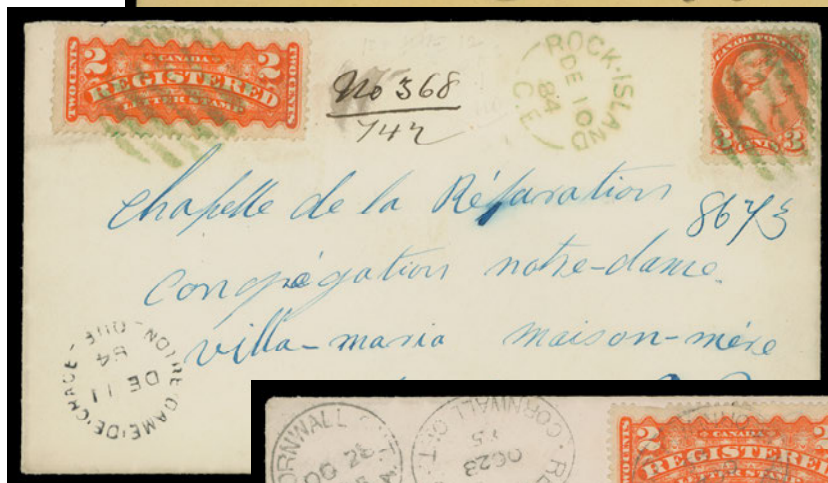 2 CANADA 2
TWO CENTS REGISTERED TWO CENTS
LETTER STAMP
No 368
742
ROCK-ISLAND
DE 10
84
C.E
CANADA POSTAGE
3 CENTS 3
chapelle de la Réparation
8673
congrégation notre-dame.
villa-maria maison-mère
NOTRE-DAME-DE-GRACE-QUE
DE 11
84
CORNWALL
OC 26
CORNWALL ONT
OC23
2 CANADA 2
TWO CENTS REGISTERED
LETTER STAMP